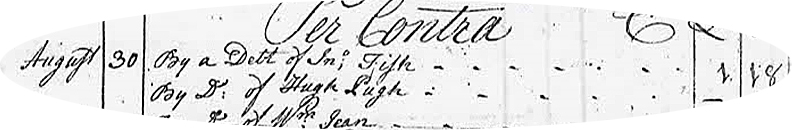 Per Contra Cr
August 30 By a Debt of Jno. Fish - - - - - - 1 18
By Do. of Hugh Pugh - - - - - -
of Wm. Jean - -